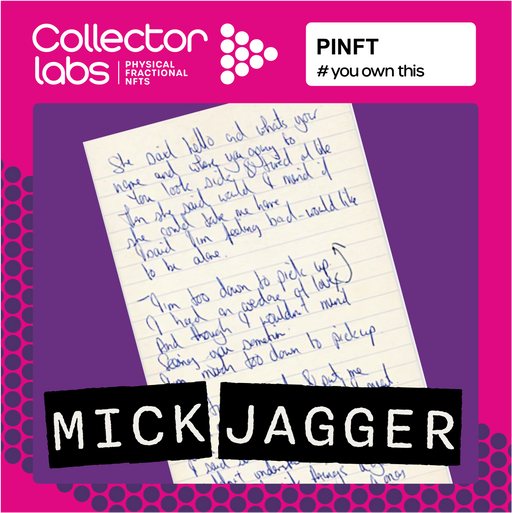 Collector
labs
PHYSICAL
FRACTIONAL
NFTS
PINFT
#you own this
She said hello and whats your
name and where you going to
You look sick & tired of life
Then she said would I mind if
she could take me home
I said I'm feeling bad - would like
to be alone.
I'm too down to pick up.
I had an overdose of love
And though I wouldn't mind
Seeing you sometime
much too down to pick up.
me
MICK JAGGER
I said
things